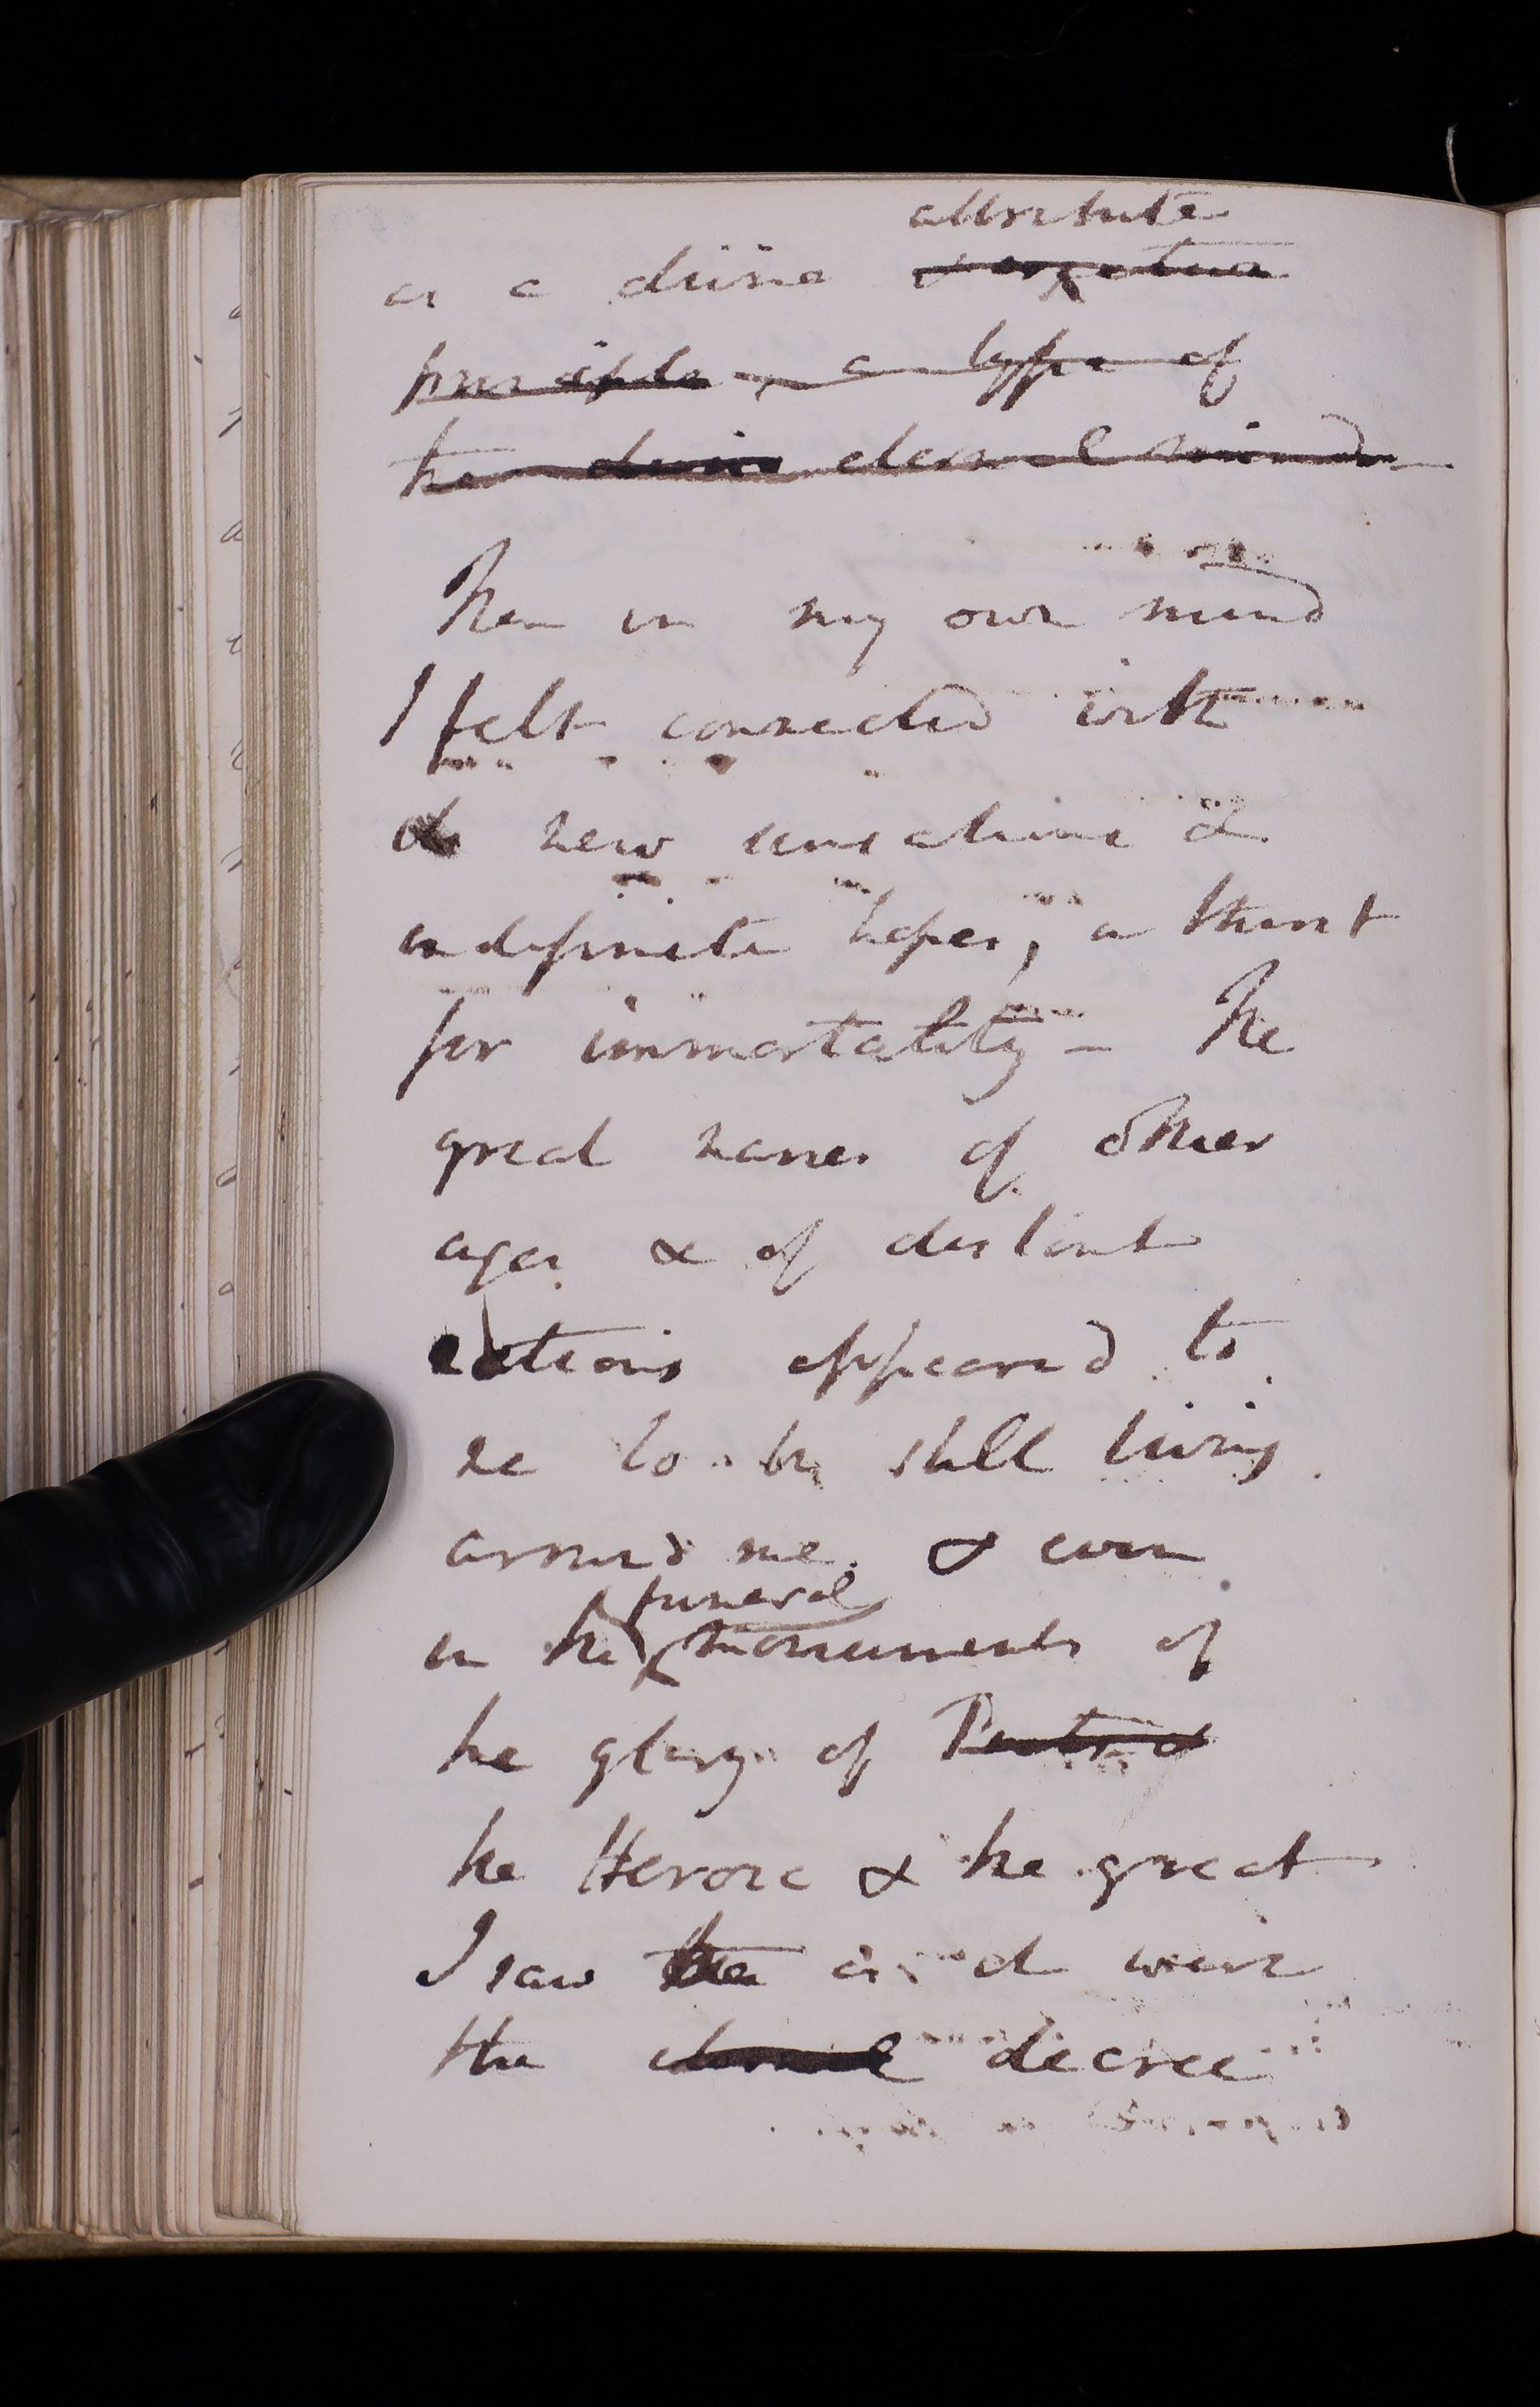 attribute
as a divine
principle, a type of
the divine eternal mind
Then in my own mind
I felt connected with
new sensations &
indefinite hopes, a thirst
for immortality - The
great names of other
ages & of distant
nations appeared to
me to be still living
around me. & even
funeral
in the monuments of
the glory of
the Heroic & the great
I saw the as it were
the eternal decree